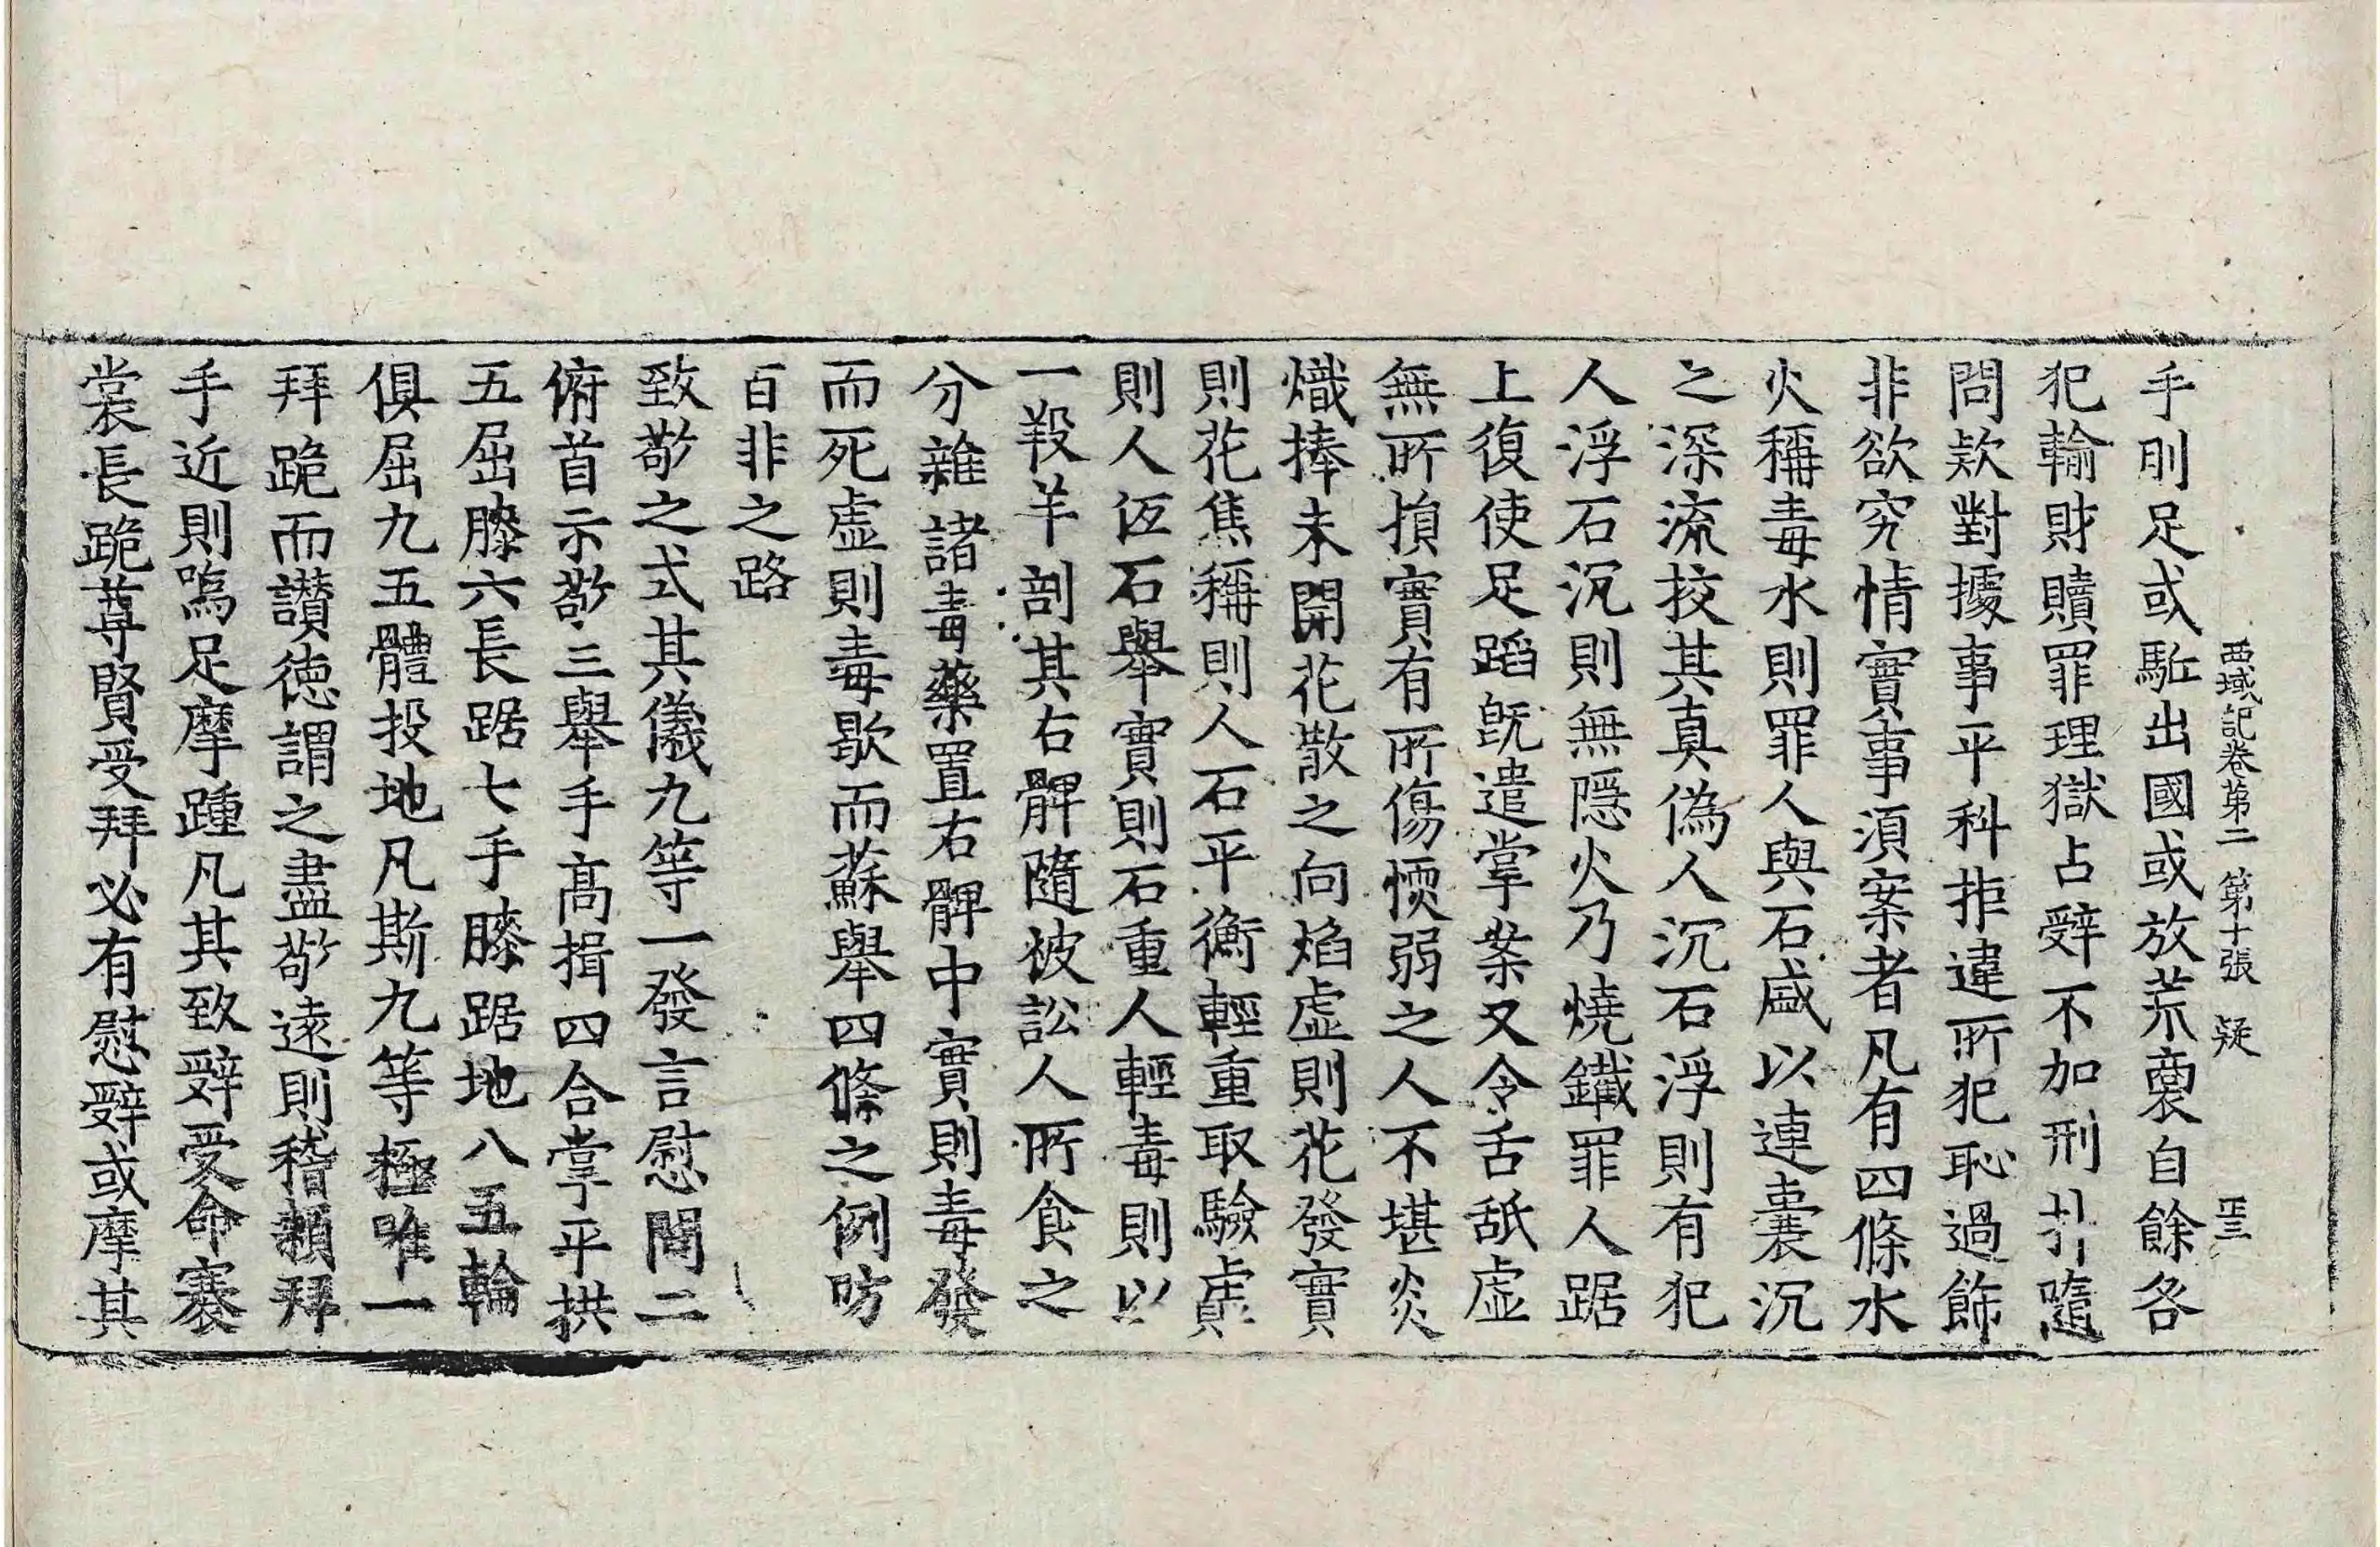 西域記卷第二 第十張 疑
手刖足或駈出國或放荒裔自餘各
犯輸財贖罪理獄占辭不加刑扑隨
問欵對據事平科拒違所犯恥過飾
非欲究情實事湏案者凡有四條水
火稱毒水則罪人與石盛以連囊沉
之深流挍其真僞人沉石浮則有犯
人浮石沉則無隱火乃燒鐵罪人踞
上復使足蹈旣遣掌案又令舌舐虛
無所損實有所傷愞弱之人不堪炎
熾捧未開花散之向焰虛則花發實
則花焦稱則人石平衡輕重取驗虛
則人低石舉實則石重人輕毒則以
一羖羊剖其右髀隨被訟人所食之
分雜諸毒藥置右髀中實則毒發
而死虛則毒歇而蘇舉四條之例防
百非之路
致敬之式其儀九等一發言慰問二
俯首示敬三舉手高揖四合掌平拱
五屈膝六長踞七手膝踞地八五輪
俱屈九五體投地凡斯九等極唯一
拜跪而讃德謂之盡敬遠則稽顙拜
手近則嗚足摩踵凡其致辭受命褰
裳長跪尊賢受拜必有慰辭或摩其